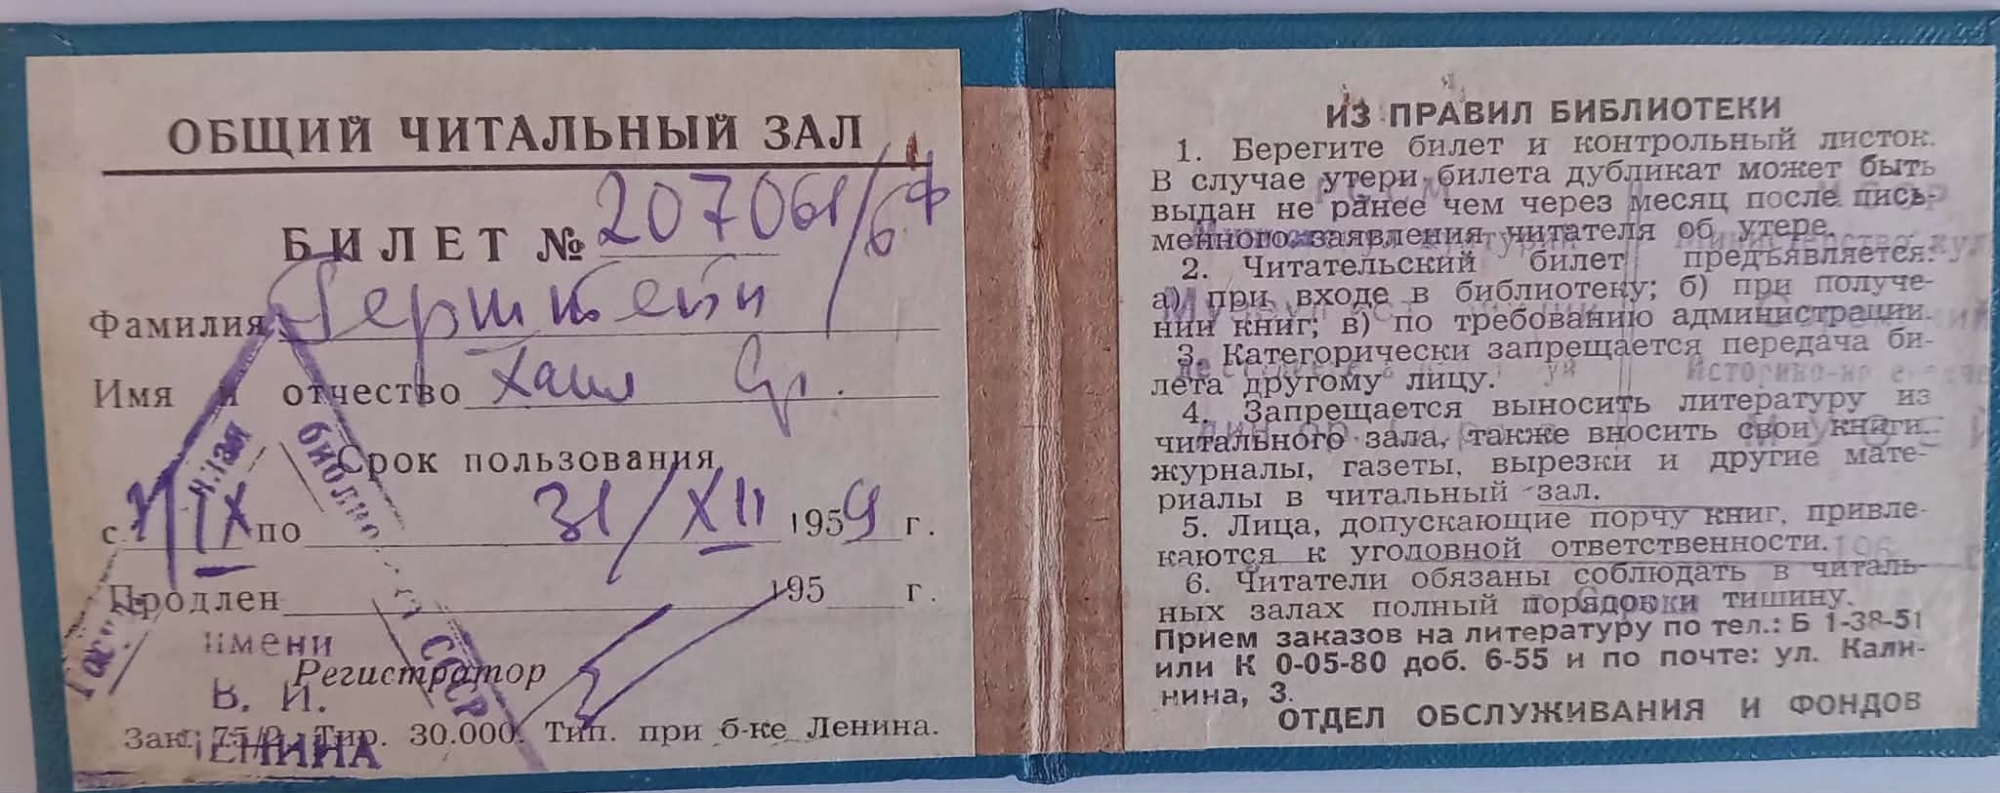 ОБЩИЙ ЧИТАЛЬНЫЙ ЗАЛ
БИЛЕТ № 207061/6ф
Фамилия
Имя и отчество
Срок пользования
с IX по 31/XII 1959 г.
Продлен 195 г.
имени
Регистратор
В. И.
ЛЕНИНА
Тир. 30.000. Тип. при б-ке Ленина.
библио
СССР
ИЗ ПРАВИЛ БИБЛИОТЕКИ
1. Берегите билет и контрольный листок.
В случае утери билета дубликат может быть
выдан не ранее чем через месяц после пись-
менного заявления читателя об утере.
2. Читательский билет предъявляется:
а) при входе в библиотеку; б) при получе-
нии книг; в) по требованию администрации.
3. Категорически запрещается передача би-
лета другому лицу.
4. Запрещается выносить литературу из
читального зала, также вносить свои книги.
журналы, газеты, вырезки и другие мате-
риалы в читальный зал.
5. Лица, допускающие порчу книг, привле-
каются к уголовной ответственности.
6. Читатели обязаны соблюдать в читаль-
ных залах полный порядок и тишину.
Прием заказов на литературу по тел.: Б 1-38-51
или К 0-05-80 доб. 6-55 и по почте: ул. Кали-
нина, 3.
ОТДЕЛ ОБСЛУЖИВАНИЯ И ФОНДОВ